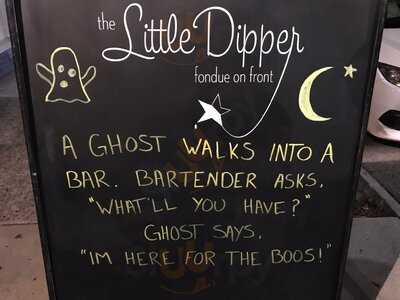 the
Little Dipper
fondue on front
A GHOST WALKS INTO A
BAR. BARTENDER ASKS,
"WHAT'LL YOU HAVE?"
GHOST SAYS,
"IM HERE FOR THE BOOS!"